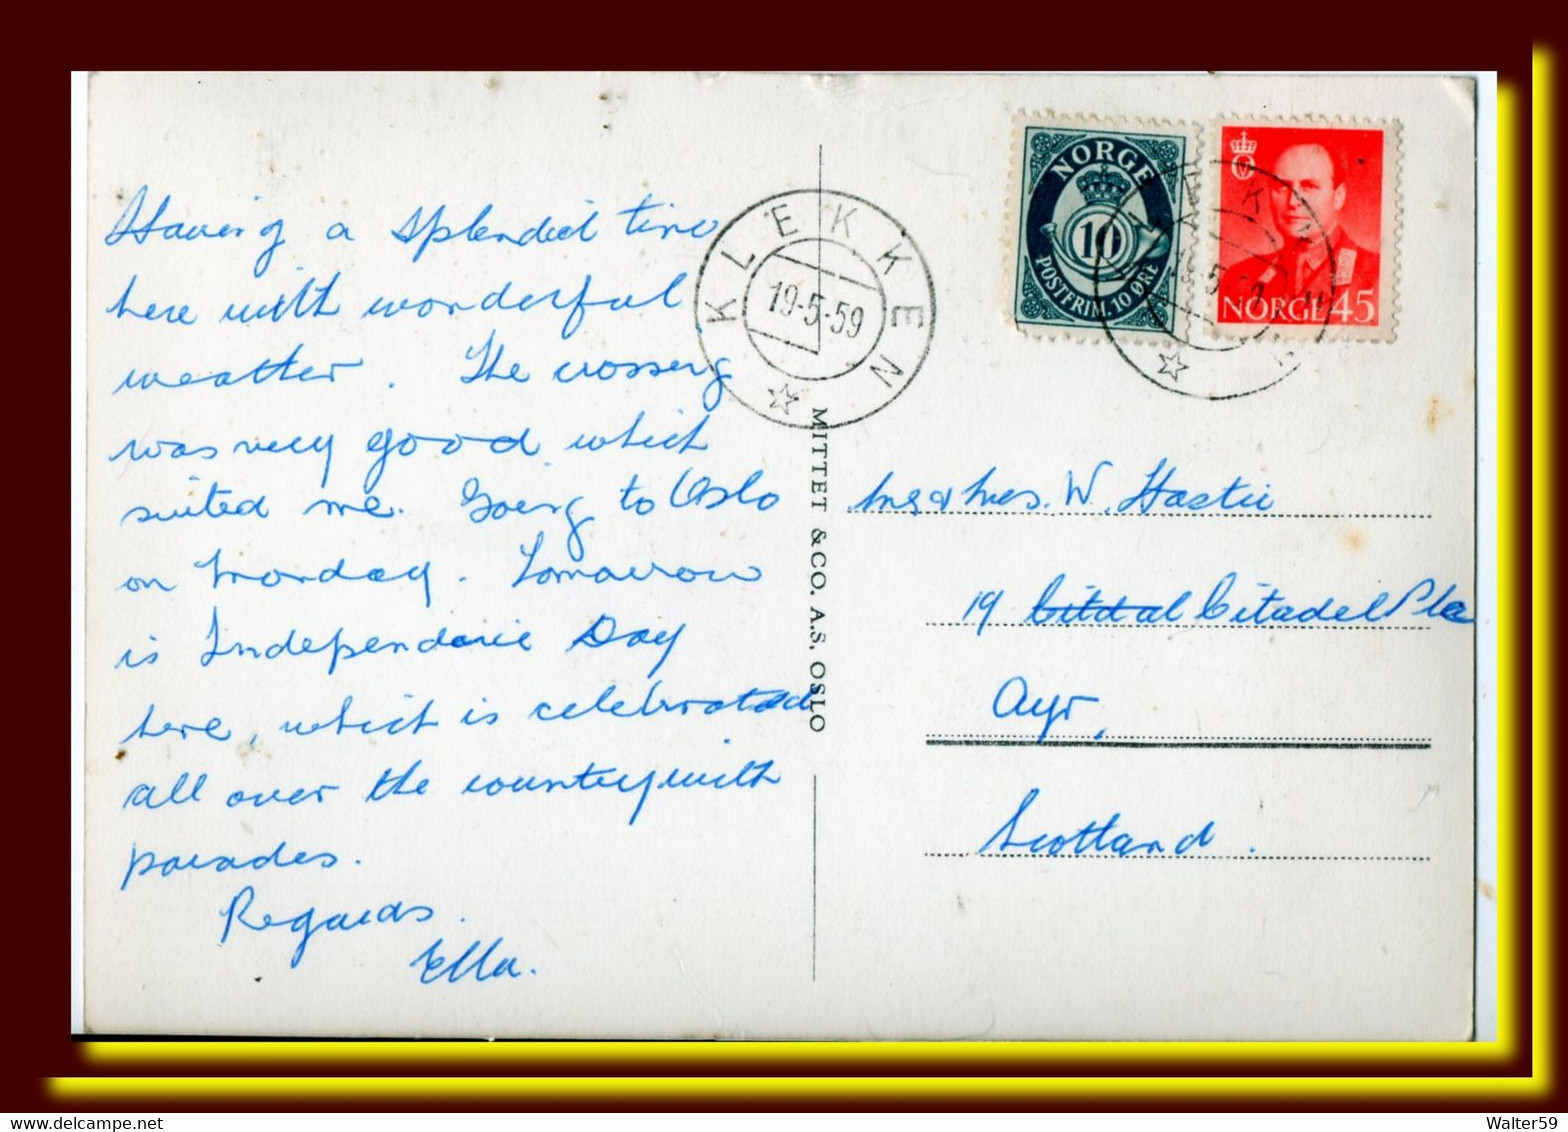 Having a splendid time
here with wonderful
weather. The crossing
was very good which
suited me. Going to Oslo
on Monday. Tomorrow
is Independence Day
here, which is celebrated
all over the country with
parades.
Regards.
Ella.
KLEKKEN
19-5-59
MITTET & CO. A.S. OSLO
NORGE
10
POSTFRIM. 10 ØRE
NORGE 45
19-5-59
Mr & Mrs. W. Hastie
19 Citdal Citadel Pla
Ayr,
Scotland.
delcampe.net
Walter59